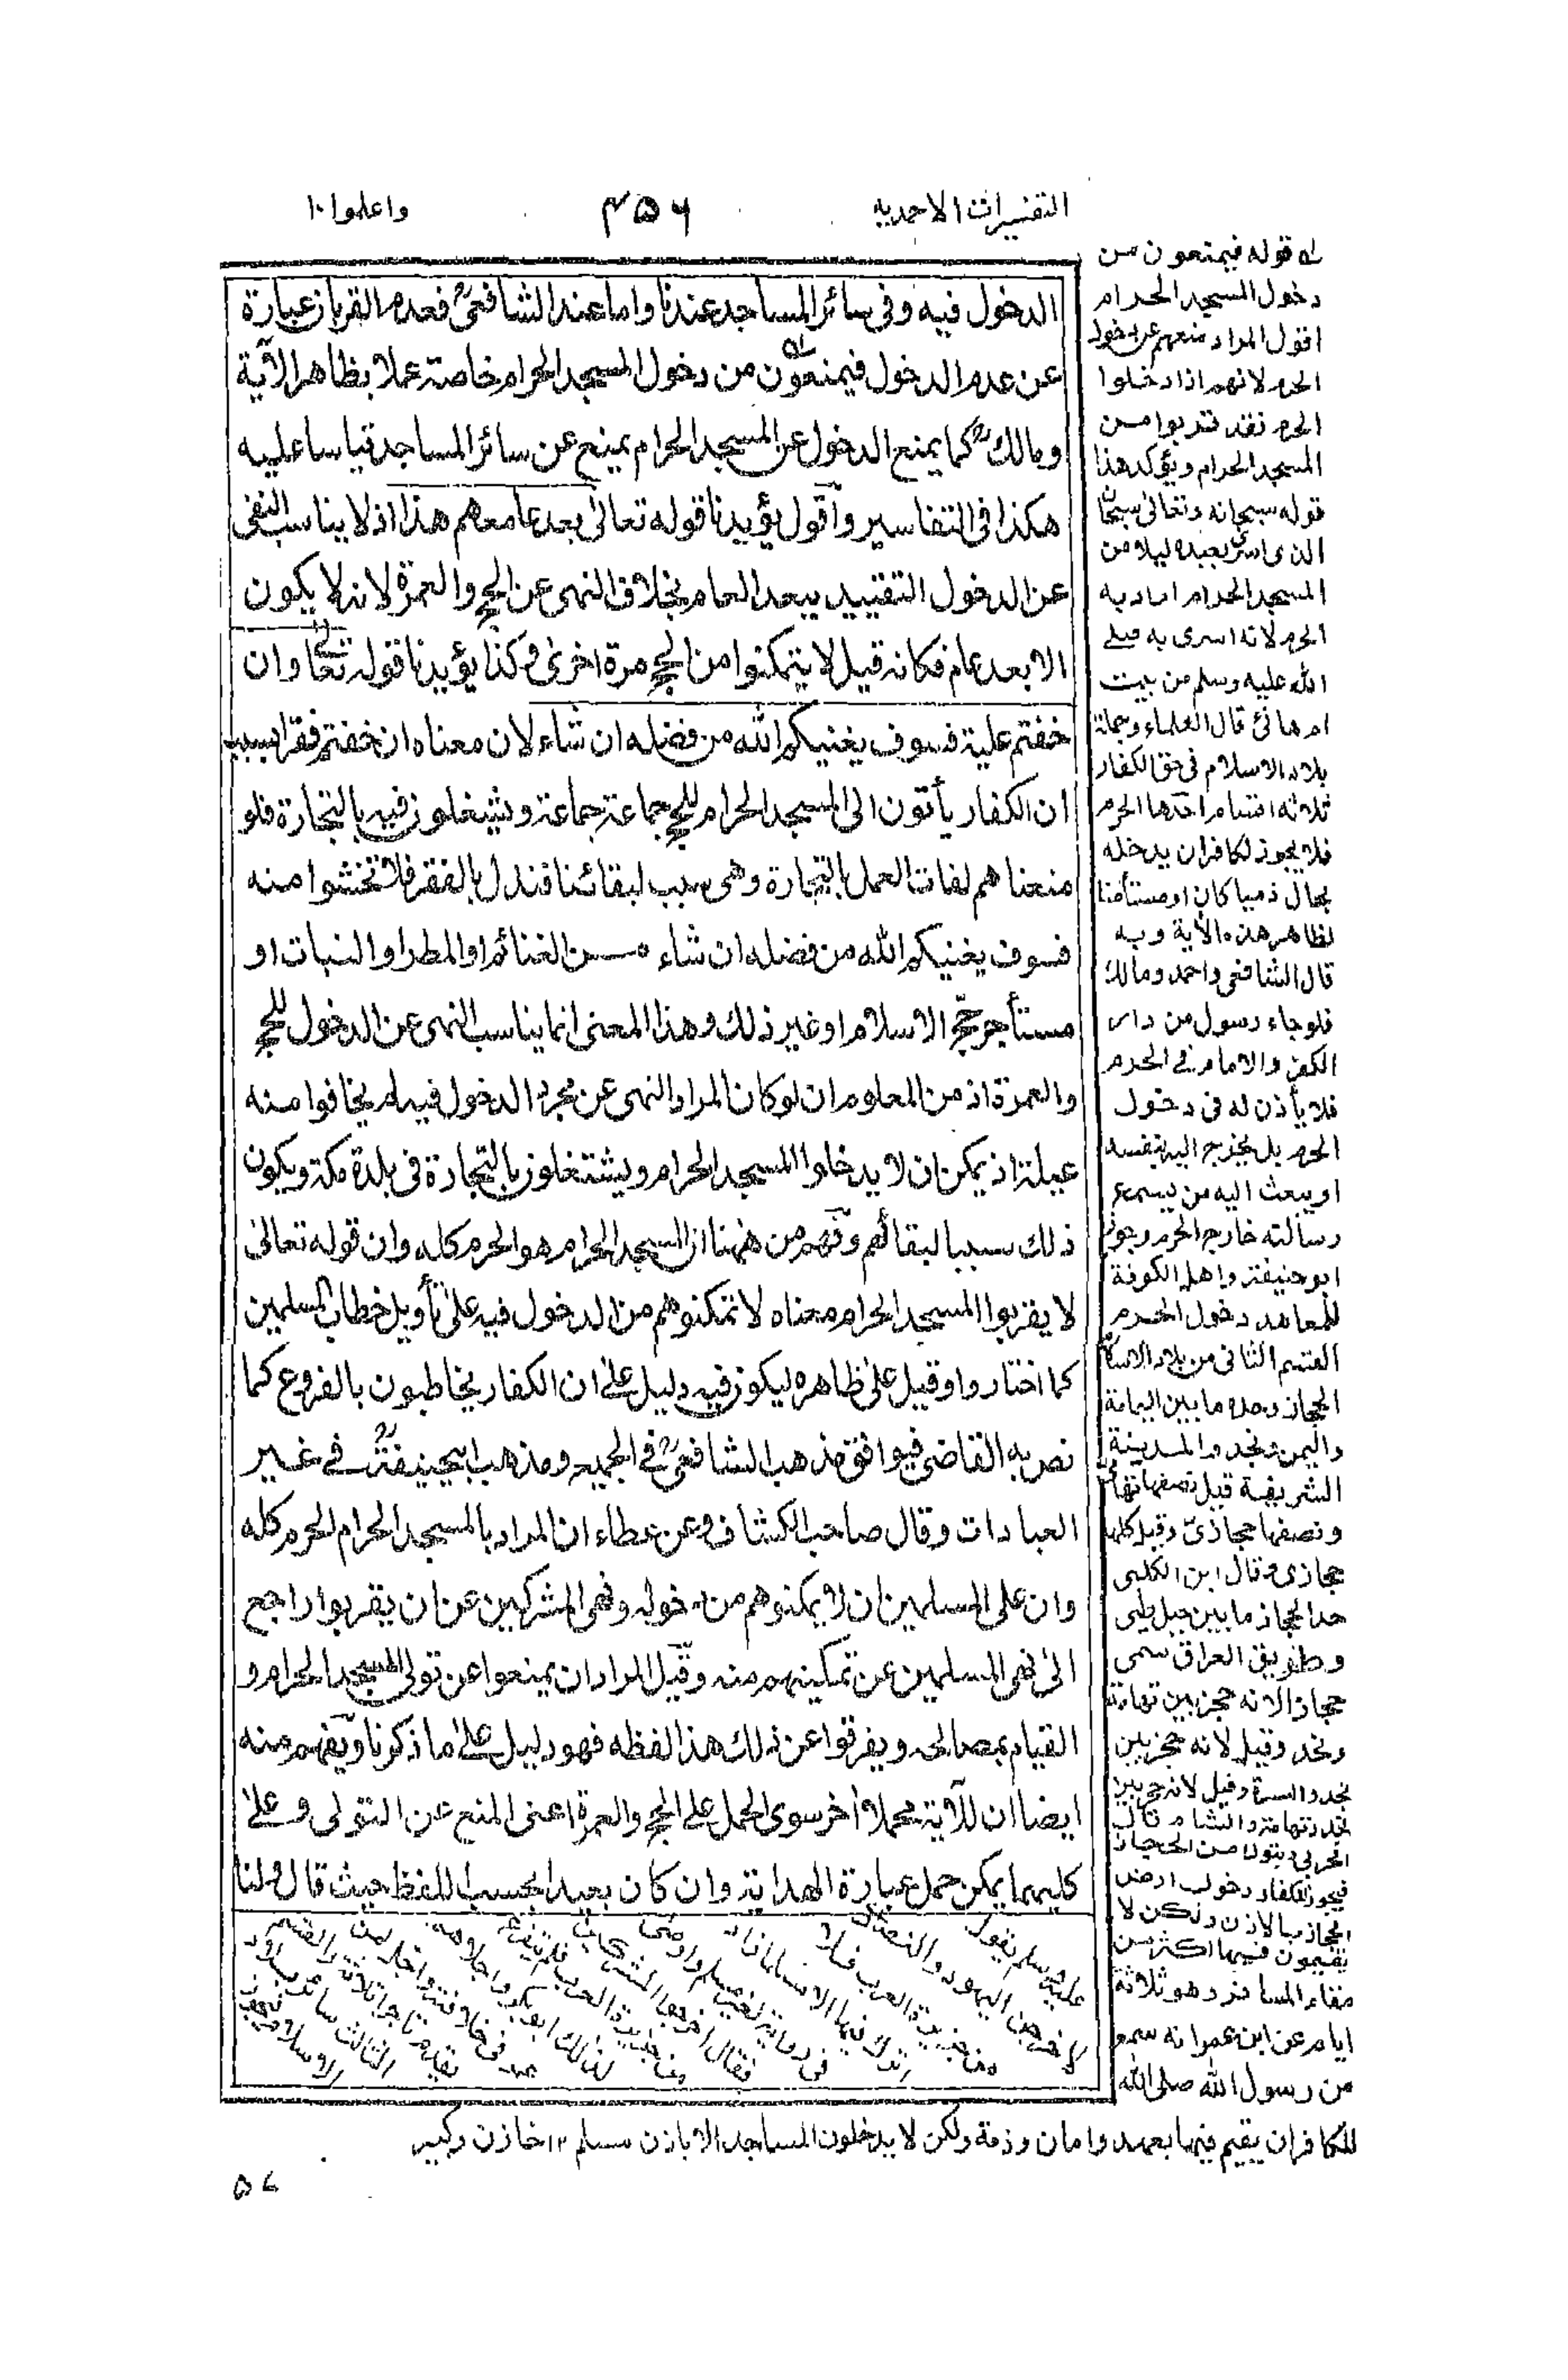 التفسيرات الاحمديه
۴۵۶
واعلموا ۱۰
الدخول فيه وفى سائر المساجد عندنا واما عند الشافعىؒ فعدم القربان عبارة
عن عدم الدخول فيمنعون من دخول المسجد الحرام خاصة عملا بظاهر الآية
ومالكؒ كما يمنع الدخول عن المسجد الحرام يمنع عن سائر المساجد قياسا عليه
هكذا فى التفاسير وآقول يؤيدنا قوله تعالىٰ بعد عامهم هذا اذ لا يناسب النفى
عن الدخول التقييد ببعد العام بخلاف النهى عن الحج والعمرة لانه لا يكون
الا بعد عام فكانه قيل لا يتمكنوا من الحج مرة اخرىٰ وكذا يؤيدنا قوله تعالىٰ وان
خفتم عليۃ فسوف يغنيكم الله من فضله ان شاء لان معناه ان خفتم فقرا بسبب
ان الكفار يأتون الى المسجد الحرام للحج جماعة جماعة ويشتغلون فيه بالتجارة فلو
منعناهم لفات العمل بالتجارة وهى سبب لبقائنا فندل بالفقر فلا تخشوا منه
فسوف يغنيكم الله من فضله ان شاء من الغنائم او المطر او النبات او
مستأجر حجّ الاسلام او غير ذلك وهذا المعنى انما يناسب النهى عن الدخول للحج
والعمرة اذ من المعلوم ان لو كان المراد النهى عن مجرد الدخول فيه لم يخافوا منه
عيلة اذ يمكن ان لا يدخلوا المسجد الحرام ويشتغلون بالتجارة فى بلدة مكة ويكون
ذلك سببا لبقائهم وفهم من ههنا ان المسجد الحرام هو الحرم كله وان قوله تعالىٰ
لا يقربوا المسجد الحرام معناه لا تمكنوهم من الدخول فيه علىٰ تأويل خطاب المسلمين
كما اختاروا وقيل علىٰ ظاهره ليكون فيه دليل علىٰ ان الكفار يخاطبون بالفروع كما
نص به القاضى فيوافق مذهب الشافعىؒ فى الجميع ومذهب ابيحنيفةؒ فى غير
العبادات وقال صاحب الكشاف وعن عطاء ان المراد بالمسجد الحرام الحرم كله
وان على المسلمين ان لا يمكنوهم من دخوله ونهى المشركين عن ان يقربوا راجع
الىٰ نهى المسلمين عن تمكينهم منه وقيل المراد ان يمنعوا عن تولى المسجد الحرام و
القيام بمصالحه ويفرقوا عن ذلك هذا لفظه فهو دليل علىٰ ما ذكرنا ويفهم منه
ايضا ان للآية محملا آخر سوى الحمل على الحج والعمرة اعنى المنع عن التولى وعلىٰ
كليهما يمكن حمل عبارة الهداية وان كان بعيدا بحسب اللفظ حيث قال ولنا
له قوله فيمنعون من
دخول المسجد الحرام
اقول المراد منعهم عن دخول
الحرم لانهم اذا دخلوا
الحرم فقد قربوا من
المسجد الحرام ويؤكد هذا
قوله سبحانه وتعالىٰ سبحٰن
الذى اسرىٰ بعبده ليلا من
المسجد الحرام اراد به
الحرم لانه اسرى به صلى
الله عليه وسلم من بيت
ام هانئ قال العلماء وجملة
بلاد الاسلام فى حق الكفار
ثلاثه اقسام احدها الحرم
فلا يجوز لكافر ان يدخله
بحال ذميا كان او مستأمنا
لظاهر هذه الأية وبه
قال الشافعى واحمد ومالك
فلو جاء رسول من دار
الكفر والامام فى الحرم
فلا يأذن له فى دخول
الحرم بل يخرج اليه بنفسه
او يبعث اليه من يسمع
رسالته خارج الحرم وجوز
ابو حنيفة واهل الكوفة
للمعاهد دخول الحرم
القسم الثانى من بلاد الاسلام
الحجاز وحده ما بين اليمامة
واليمن ونجد والمدينة
الشريفة قيل نصفها تهامى
ونصفها حجازىّ وقيل كلها
حجازى وقال ابن الكلبى
حد الحجاز ما بين جبل طى
وطريق العراق سمى
حجازا لانه حجز بين تهامة
ونجد وقيل لانه حجز بين
نجد والسراة وقيل لانه حجز بين
نجد وتهامة والشام قال
الحربى وتبوك من الحجاز
فيجوز للكفار دخول ارض
الحجاز بالاذن ولكن لا
يقيمون فيها اكثر من
مقام المسافر وهو ثلاثة
ايام عن ابن عمر انه سمع
من رسول الله صلى الله
عليه وسلم يقول
لاخرجن اليهود والنصارى
من جزيرة العرب فلا
اترك فيها الا مسلما
للكافر ان يقيم فيها بعهد وامان وذمة ولكن لا يدخلون المساجد الا باذن مسلم ۱۲ خازن وكبير
۵۷